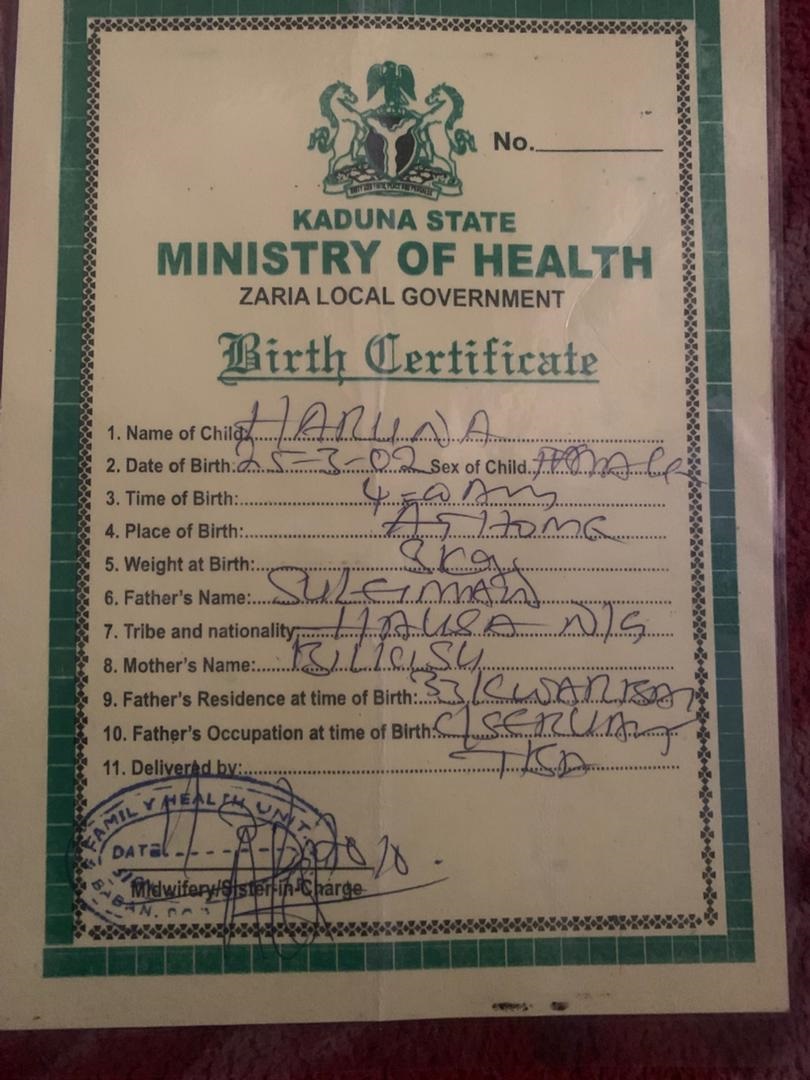 No.
KADUNA STATE
MINISTRY OF HEALTH
ZARIA LOCAL GOVERNMENT
Birth Certificate
1. Name of Child HARUNA
2. Date of Birth: 25-3-02 Sex of Child
3. Time of Birth: 4=00 Am
4. Place of Birth: AT HOME
5. Weight at Birth: 3kg
6. Father's Name: SULEIMAN
7. Tribe and nationality HAUSA NIG
8. Mother's Name: BILKISU
9. Father's Residence at time of Birth: 33
10. Father's Occupation at time of Birth: C/SERVANT
11. Delivered by:
FAMILY HEALTH UNIT
DATE
Midwifery/Sister-in-Charge